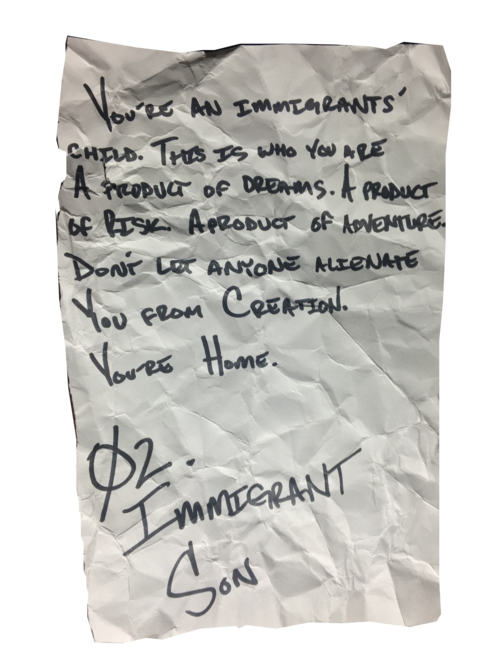 YOU'RE AN IMMIGRANTS'
CHILD. THIS IS WHO YOU ARE
A PRODUCT OF DREAMS. A PRODUCT
OF RISK. A PRODUCT OF ADVENTURE.
DON'T LET ANYONE ALIENATE
YOU FROM CREATION.
YOU'RE HOME.
02.
IMMIGRANT
SON